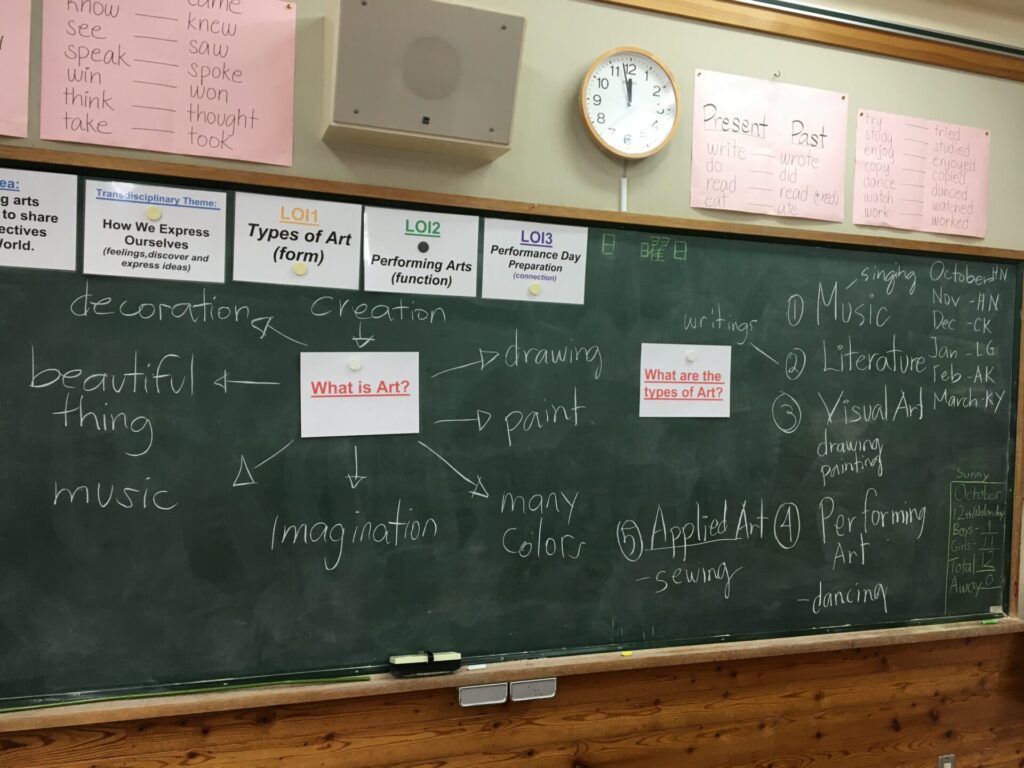 came
know — knew
see — saw
speak — spoke
win — won
think — thought
take — took
Present Past
write — wrote
do — did
read — read (red)
eat — ate
try — tried
study — studied
enjoy — enjoyed
copy — copied
dance — danced
watch — watched
work — worked
12
1
2
3
4
5
6
7
8
9
10
11
ea:
g arts
to share
ectives
World.
Transdisciplinary Theme:
How We Express
Ourselves
(feelings,discover and
express ideas)
LOI1
Types of Art
(form)
LOI2
Performing Arts
(function)
LOI3
Performance Day
Preparation
(connection)
日 曜日
decoration
creation
What is Art?
drawing
beautiful
thing
paint
music
Imagination
many
colors
What are the
types of Art?
① Music
singing
writings
② Literature
③ Visual Art
drawing
painting
④ Performing
Art
-dancing
⑤ Applied Art
-sewing
October-HN
Nov -HN
Dec -CK
Jan -LG
Feb -AK
March-KY
Sunny
October
12th Wednesday
Boys - 1
Girls - 11
Total 12
Away 0